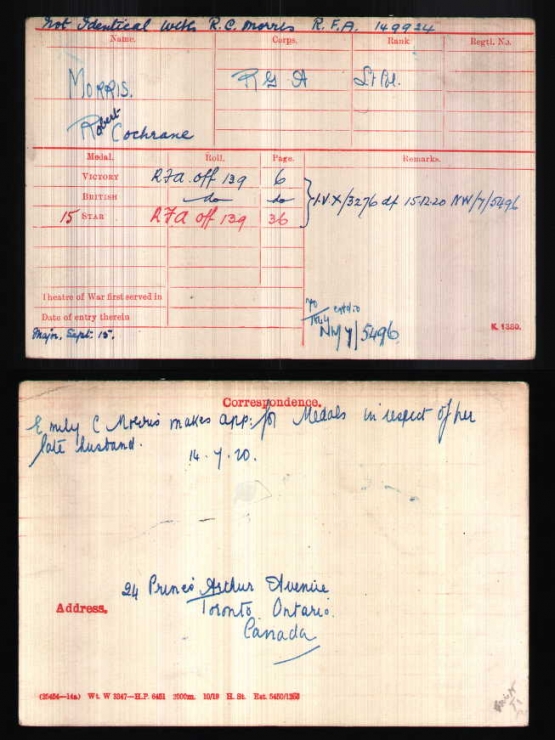 Not Identical with R.C. Morris R.F.A. 149934
Name. Corps. Rank Regtl. No.
MORRIS. RGA Lt Col.
Robert Cochrane
Medal. Roll. Page. Remarks.
VICTORY RFA off 139 6
BRITISH do do I.V.X/3276 df 15.12.20 NW/7/5496
15 STAR RFA off 139 36
Theatre of War first served in
Date of entry therein
NW/7/5496 K. 1380.
Major, Sept. 15.
Correspondence.
Emily C Morris makes app: for Medals in respect of her
late husband.
14.7.20.
24 Prince Arthur Avenue
Address. Toronto Ontario.
Canada
(25434—14a) Wt. W 3347—H.P. 6451 2000m. 10/19 H. St.